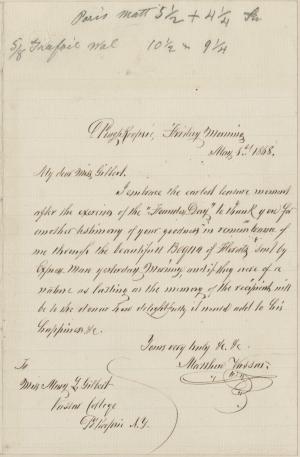 Paris Matt 5 1/2 + 4 1/4
5/8 Trefoil Wal 10 1/2 x 9 1/4
Po'keepsie, Friday Morning
May 1st 1868.
My dear Miss Gilbert.
I embrace the earliest leasure moment
after the exercises of the "Founders Day" to thank you for
another testimony of your goodness in remembrance of
me through the beautifull Boquet of Flowers sent by
Express Man yesterday Morning and if they were of a
nature as lasting as the memory of the recipient will
be to the donor how delightfully it would add to his
happiness &c.
Yours very truly &c &c
Matthew Vassar
To
Miss Mary L Gilbert
Vassar College
Po'keepsie N.Y.